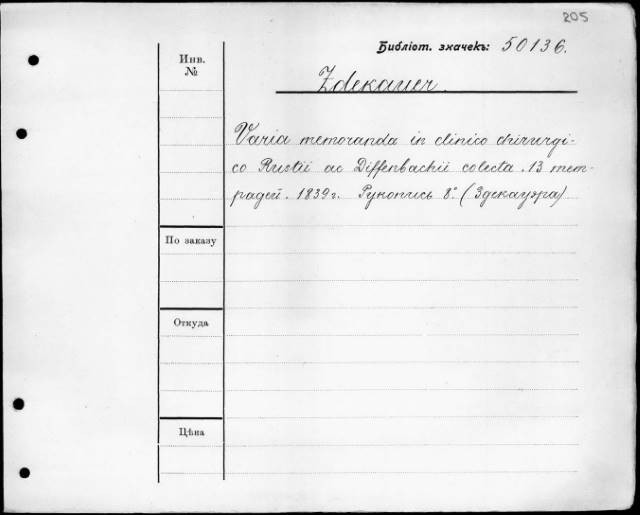 205
Библіот. значекъ: 50136.
Инв.
№
Zdekauer.
Varia memoranda in clinico chirurgi-
co Rustii ac Diffenbachii colecta. 13 тет-
радей. 1839 г. Рукопись 8°. (Здекауэра)
По заказу
Откуда
Цѣна